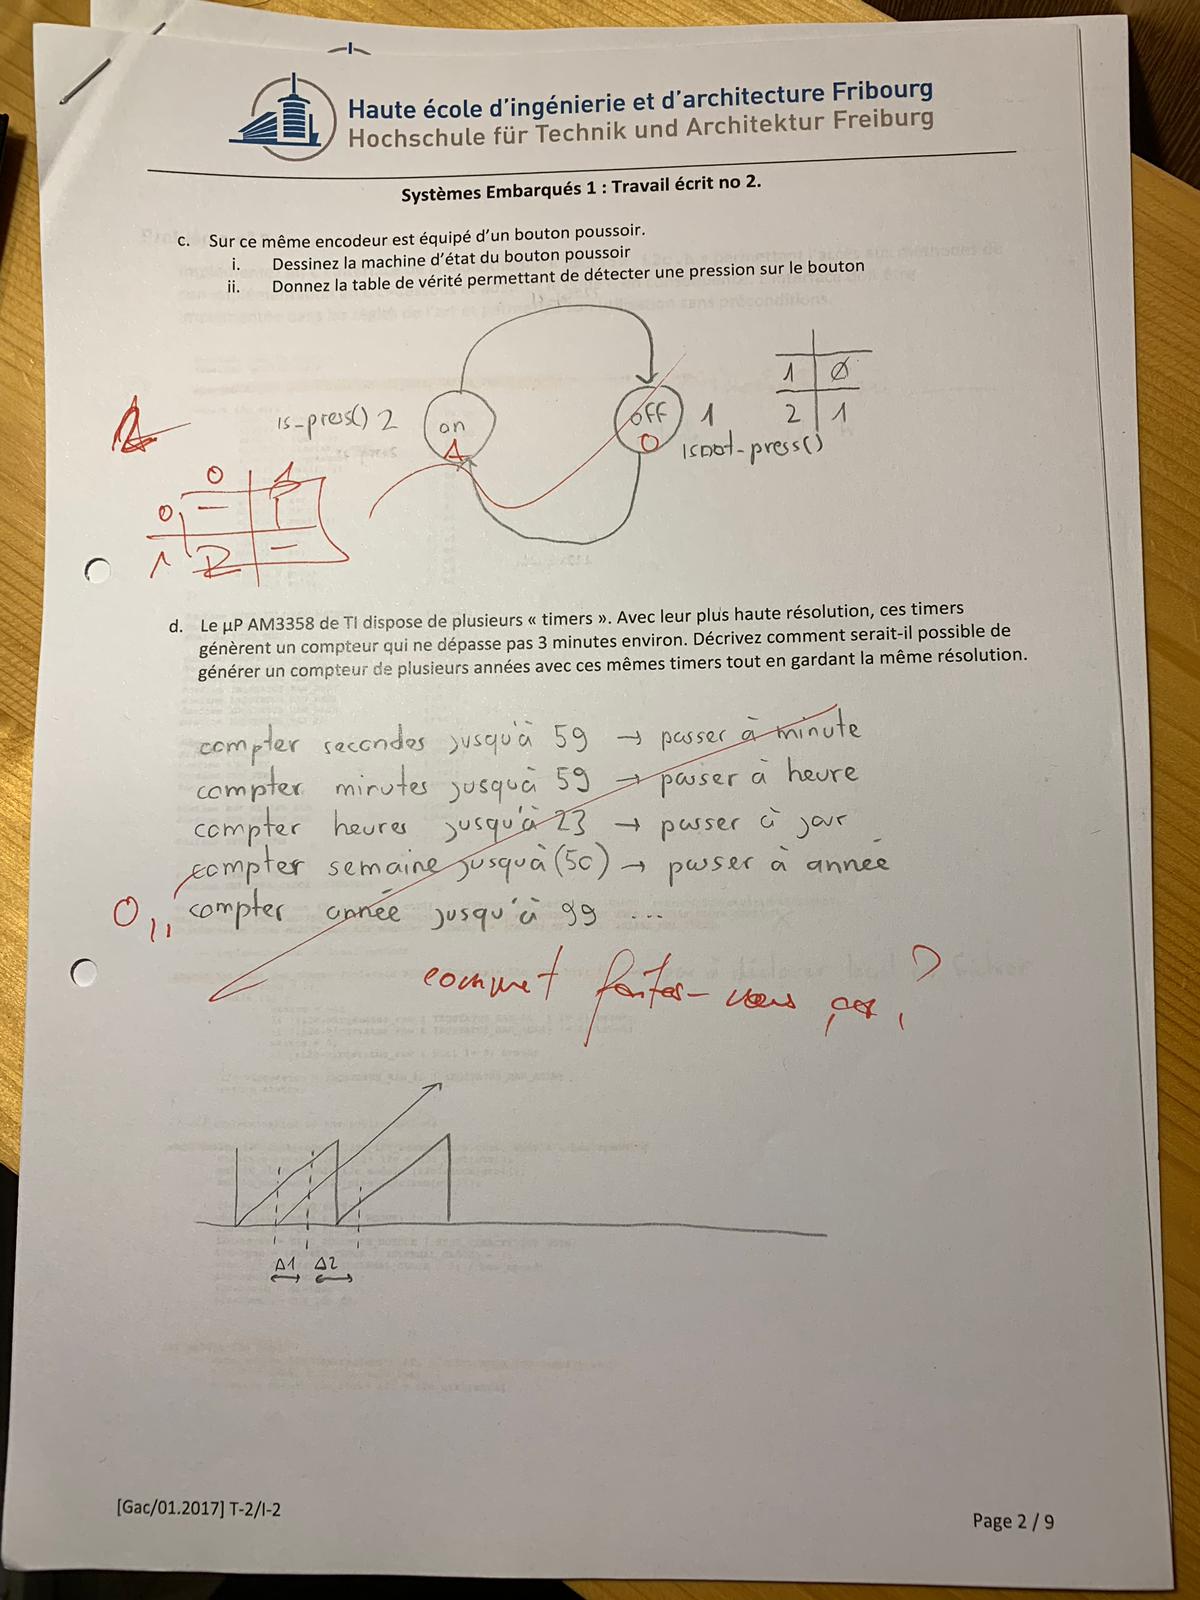 Haute école d'ingénierie et d'architecture Fribourg
Hochschule für Technik und Architektur Freiburg
Systèmes Embarqués 1 : Travail écrit no 2.
c. Sur ce même encodeur est équipé d'un bouton poussoir.
i. Dessinez la machine d'état du bouton poussoir
ii. Donnez la table de vérité permettant de détecter une pression sur le bouton
1 Ø
is-press() 2 on off 1 2 1
1 0 isnot-press()
0 1
0 -
1 -
d. Le µP AM3358 de TI dispose de plusieurs « timers ». Avec leur plus haute résolution, ces timers
génèrent un compteur qui ne dépasse pas 3 minutes environ. Décrivez comment serait-il possible de
générer un compteur de plusieurs années avec ces mêmes timers tout en gardant la même résolution.
compter secondes jusqu'à 59 → passer à minute
compter minutes jusquà 59 → passer à heure
compter heures jusqu'à 23 → passer à jour
compter semaine jusquà (50) → passer à année
0,, compter année jusqu'à 99 ...
comment faites-vous ça ?
Δ1 Δ2
[Gac/01.2017] T-2/I-2
Page 2 / 9